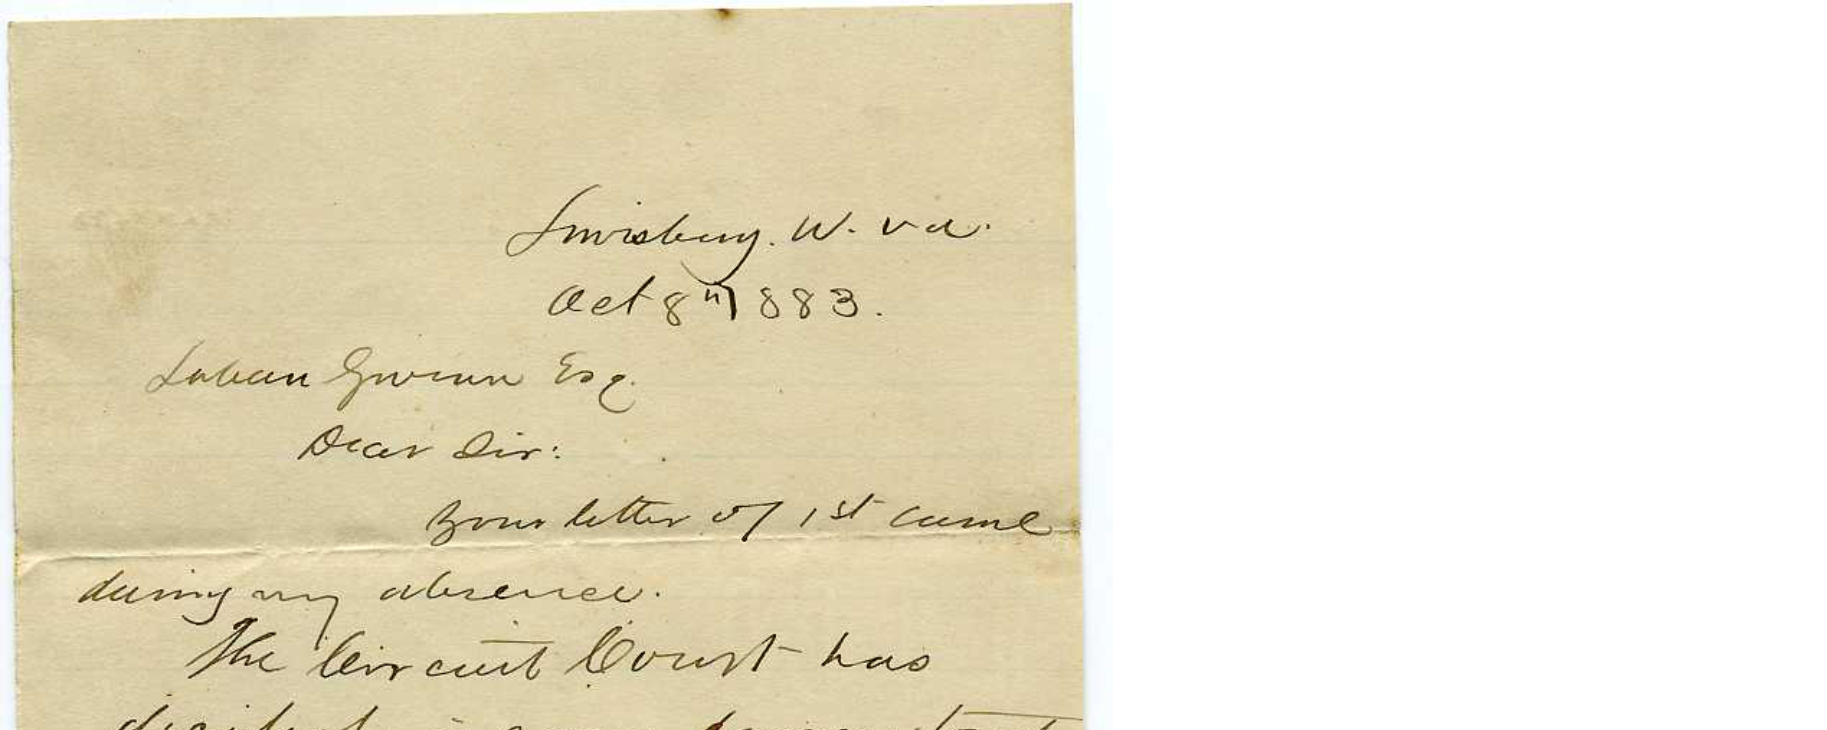 Lewisburg. W. Va.
Oct 8th 1883.
Laban Gwinn Esq.
Dear Sir:
Your letter of 1st came
during my absence.
The Circuit Court has
decided